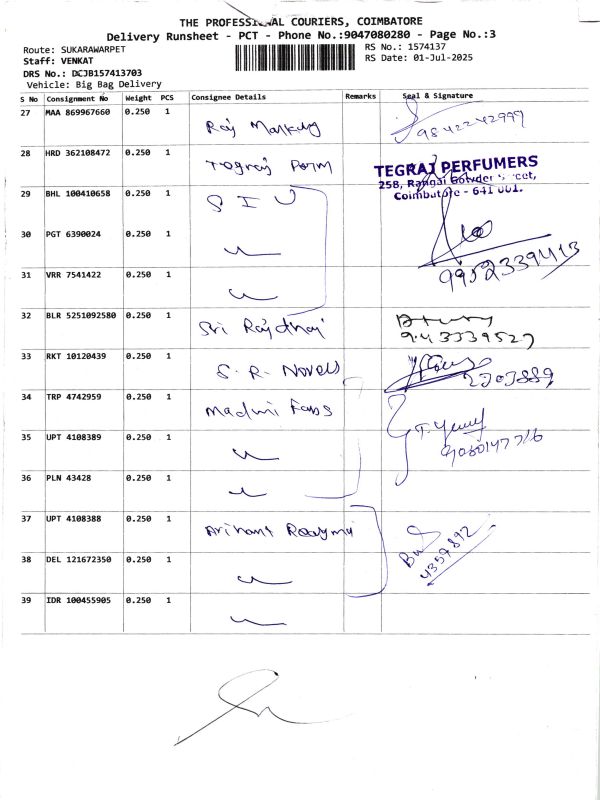 THE PROFESSIONAL COURIERS, COIMBATORE
Delivery Runsheet - PCT - Phone No.:9047080280 - Page No.:3
Route: SUKARAWARPET
RS No.: 1574137
Staff: VENKAT
RS Date: 01-Jul-2025
DRS No.: DCJB157413703
Vehicle: Big Bag Delivery
S No Consignment No Weight PCS Consignee Details Remarks Seal & Signature
27 MAA 869967660 0.250 1 Raj 9842242999
28 HRD 362108472 0.250 1
TEGRAJ PERFUMERS
258, Rangai Gowder Street,
Coimbatore - 641 001.
29 BHL 100410658 0.250 1 S I U
30 PGT 6390024 0.250 1
31 VRR 7541422 0.250 1 9952339413
32 BLR 5251092580 0.250 1 Sri
9433339527
33 RKT 10120439 0.250 1 S. R. Novels
34 TRP 4742959 0.250 1 Fabs
35 UPT 4108389 0.250 1
36 PLN 43428 0.250 1
37 UPT 4108388 0.250 1 Arihant
4357892
38 DEL 121672350 0.250 1
39 IDR 100455905 0.250 1